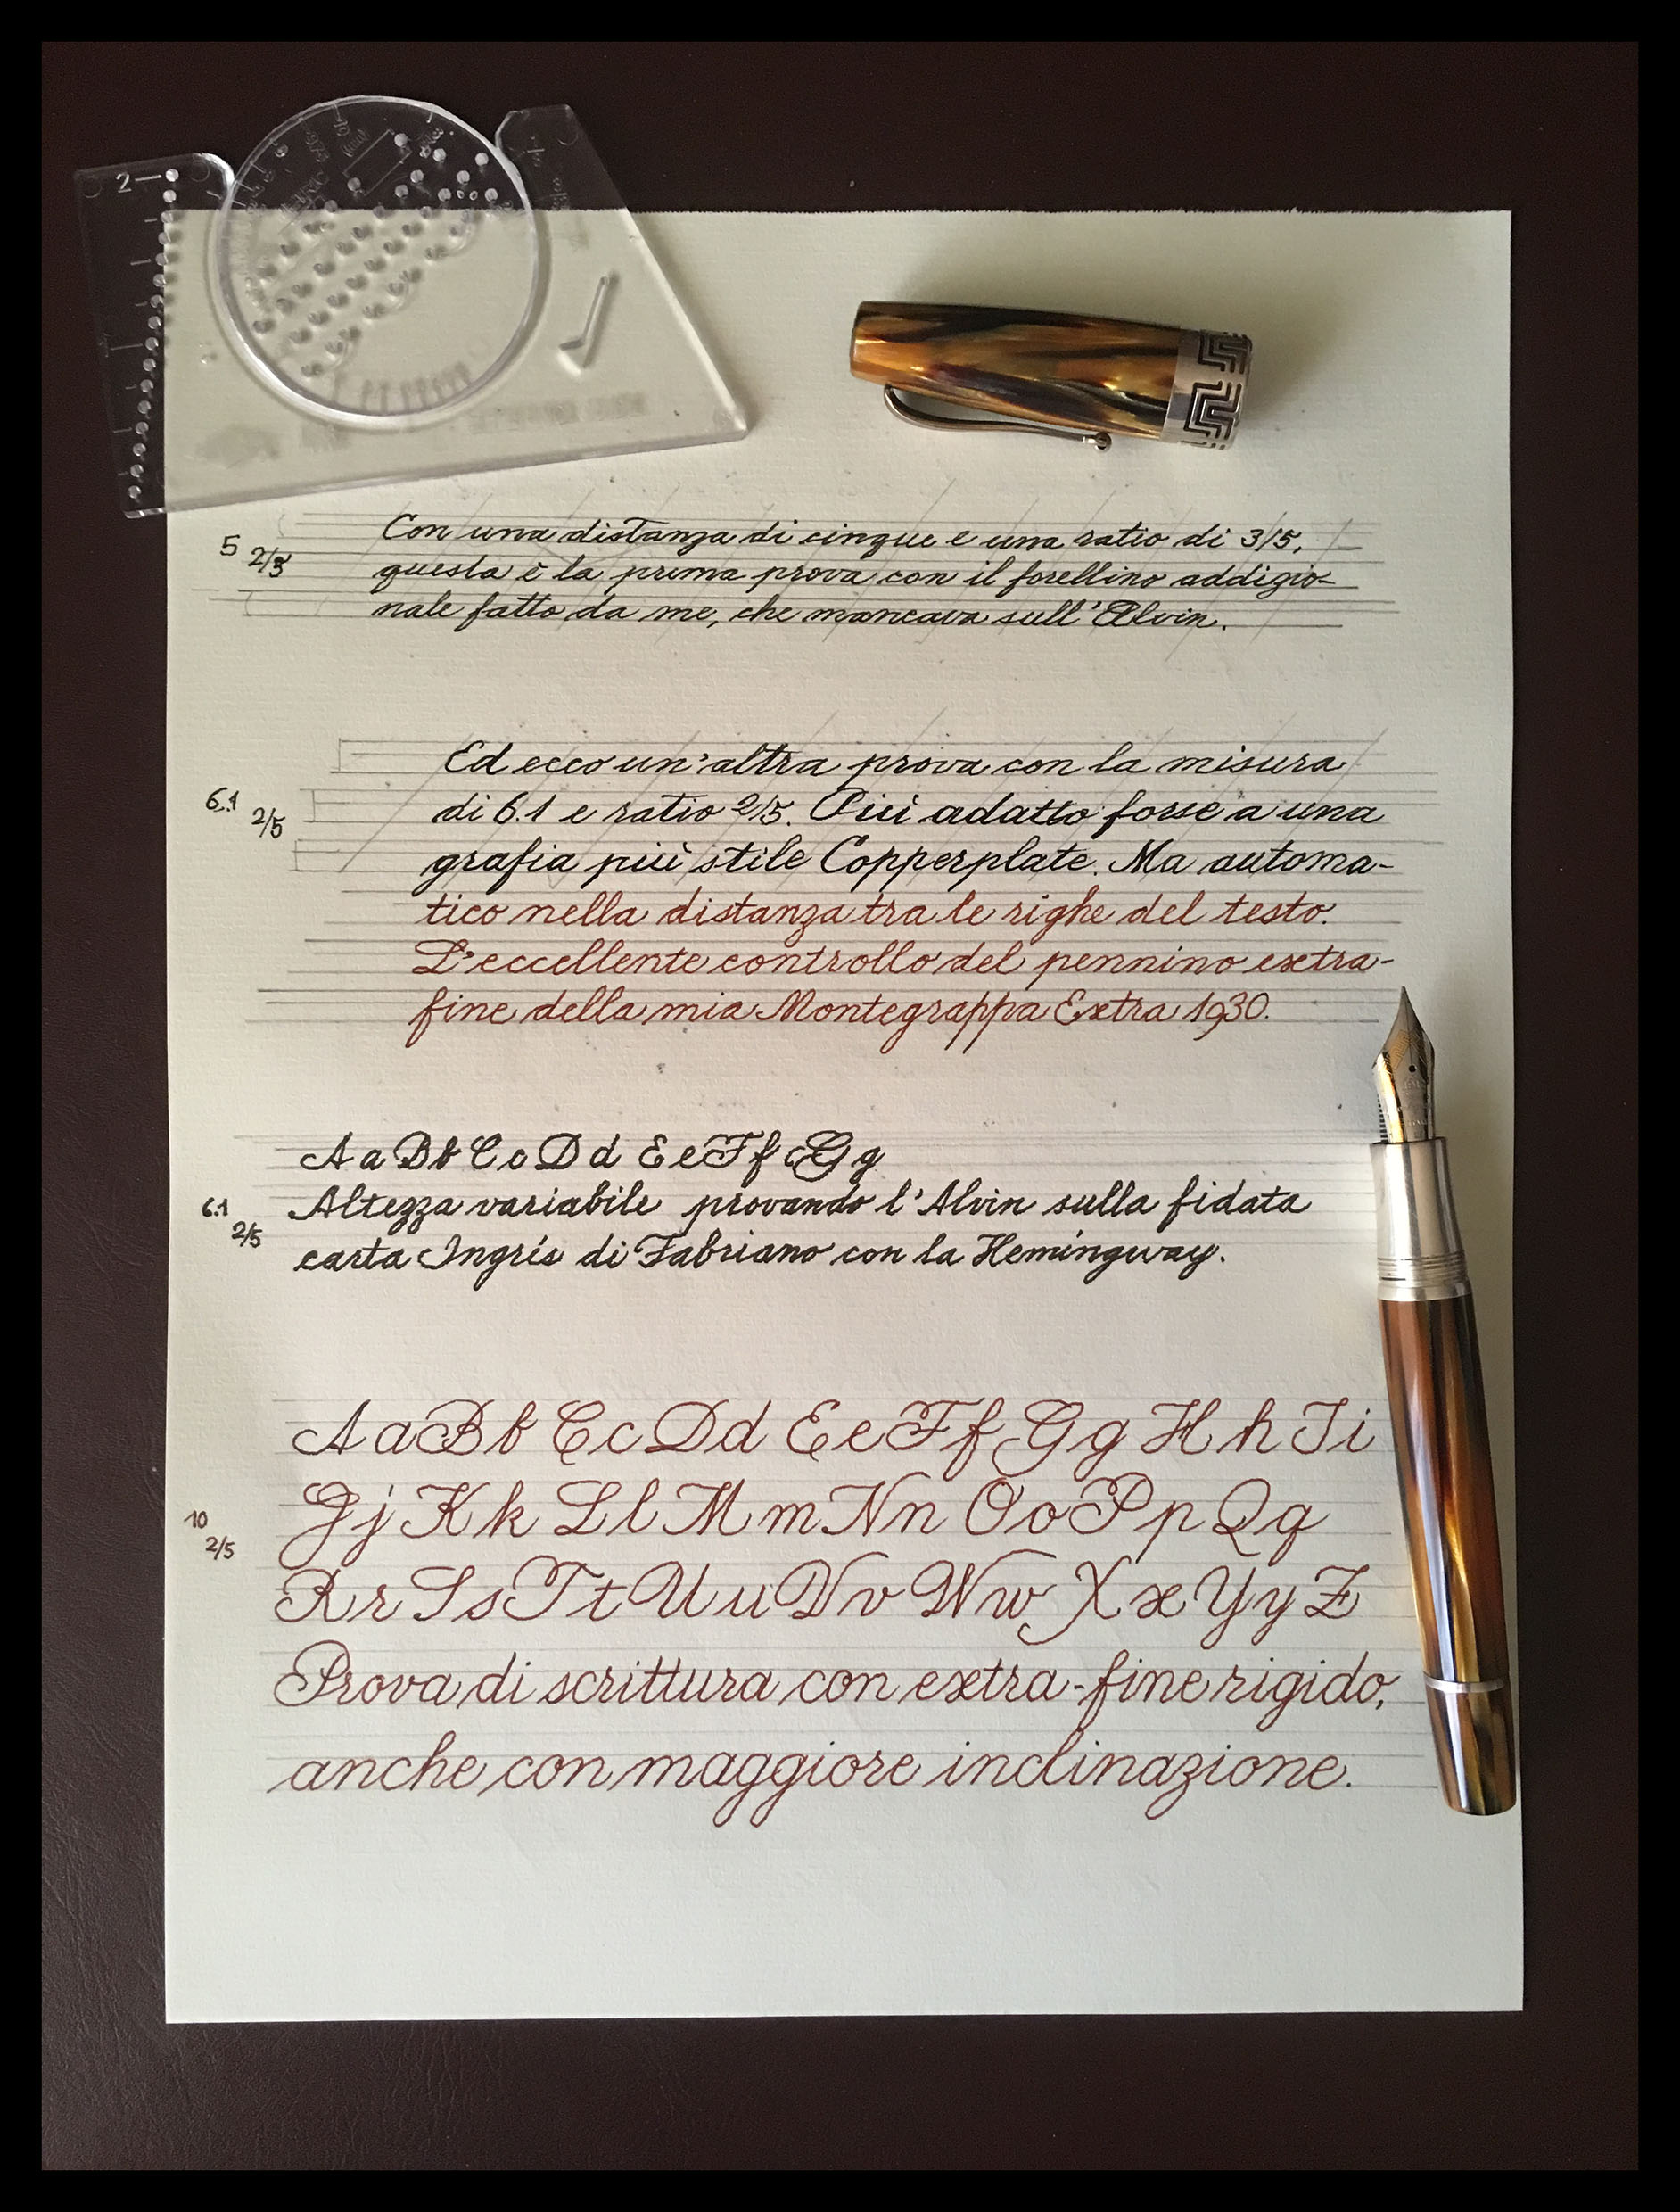 2
5 2/3
Con una distanza di cinque e una ratio di 3/5,
questa è la prima prova con il forellino addizio-
nale fatto da me, che mancava sull'Alvin.
6.1 2/5
Ed ecco un'altra prova con la misura
di 6.1 e ratio 2/5. Più adatto forse a una
grafia più stile Copperplate. Ma automa-
tico nella distanza tra le righe del testo.
L'eccellente controllo del pennino extra-
fine della mia Montegrappa Extra 1930.
Aa Bb Cc Dd Ee Ff Gg
6.1 2/5
Altezza variabile provando l'Alvin sulla fidata
carta Ingrís di Fabriano con la Hemingway.
Aa Bb Cc Dd Ee Ff Gg Hh Ii
Jj Kk Ll Mm Nn Oo Pp Qq
10 2/5
Rr Ss Tt Uu Vv Ww Xx Yy Z
Prova di scrittura con extra-fine rigido,
anche con maggiore inclinazione.